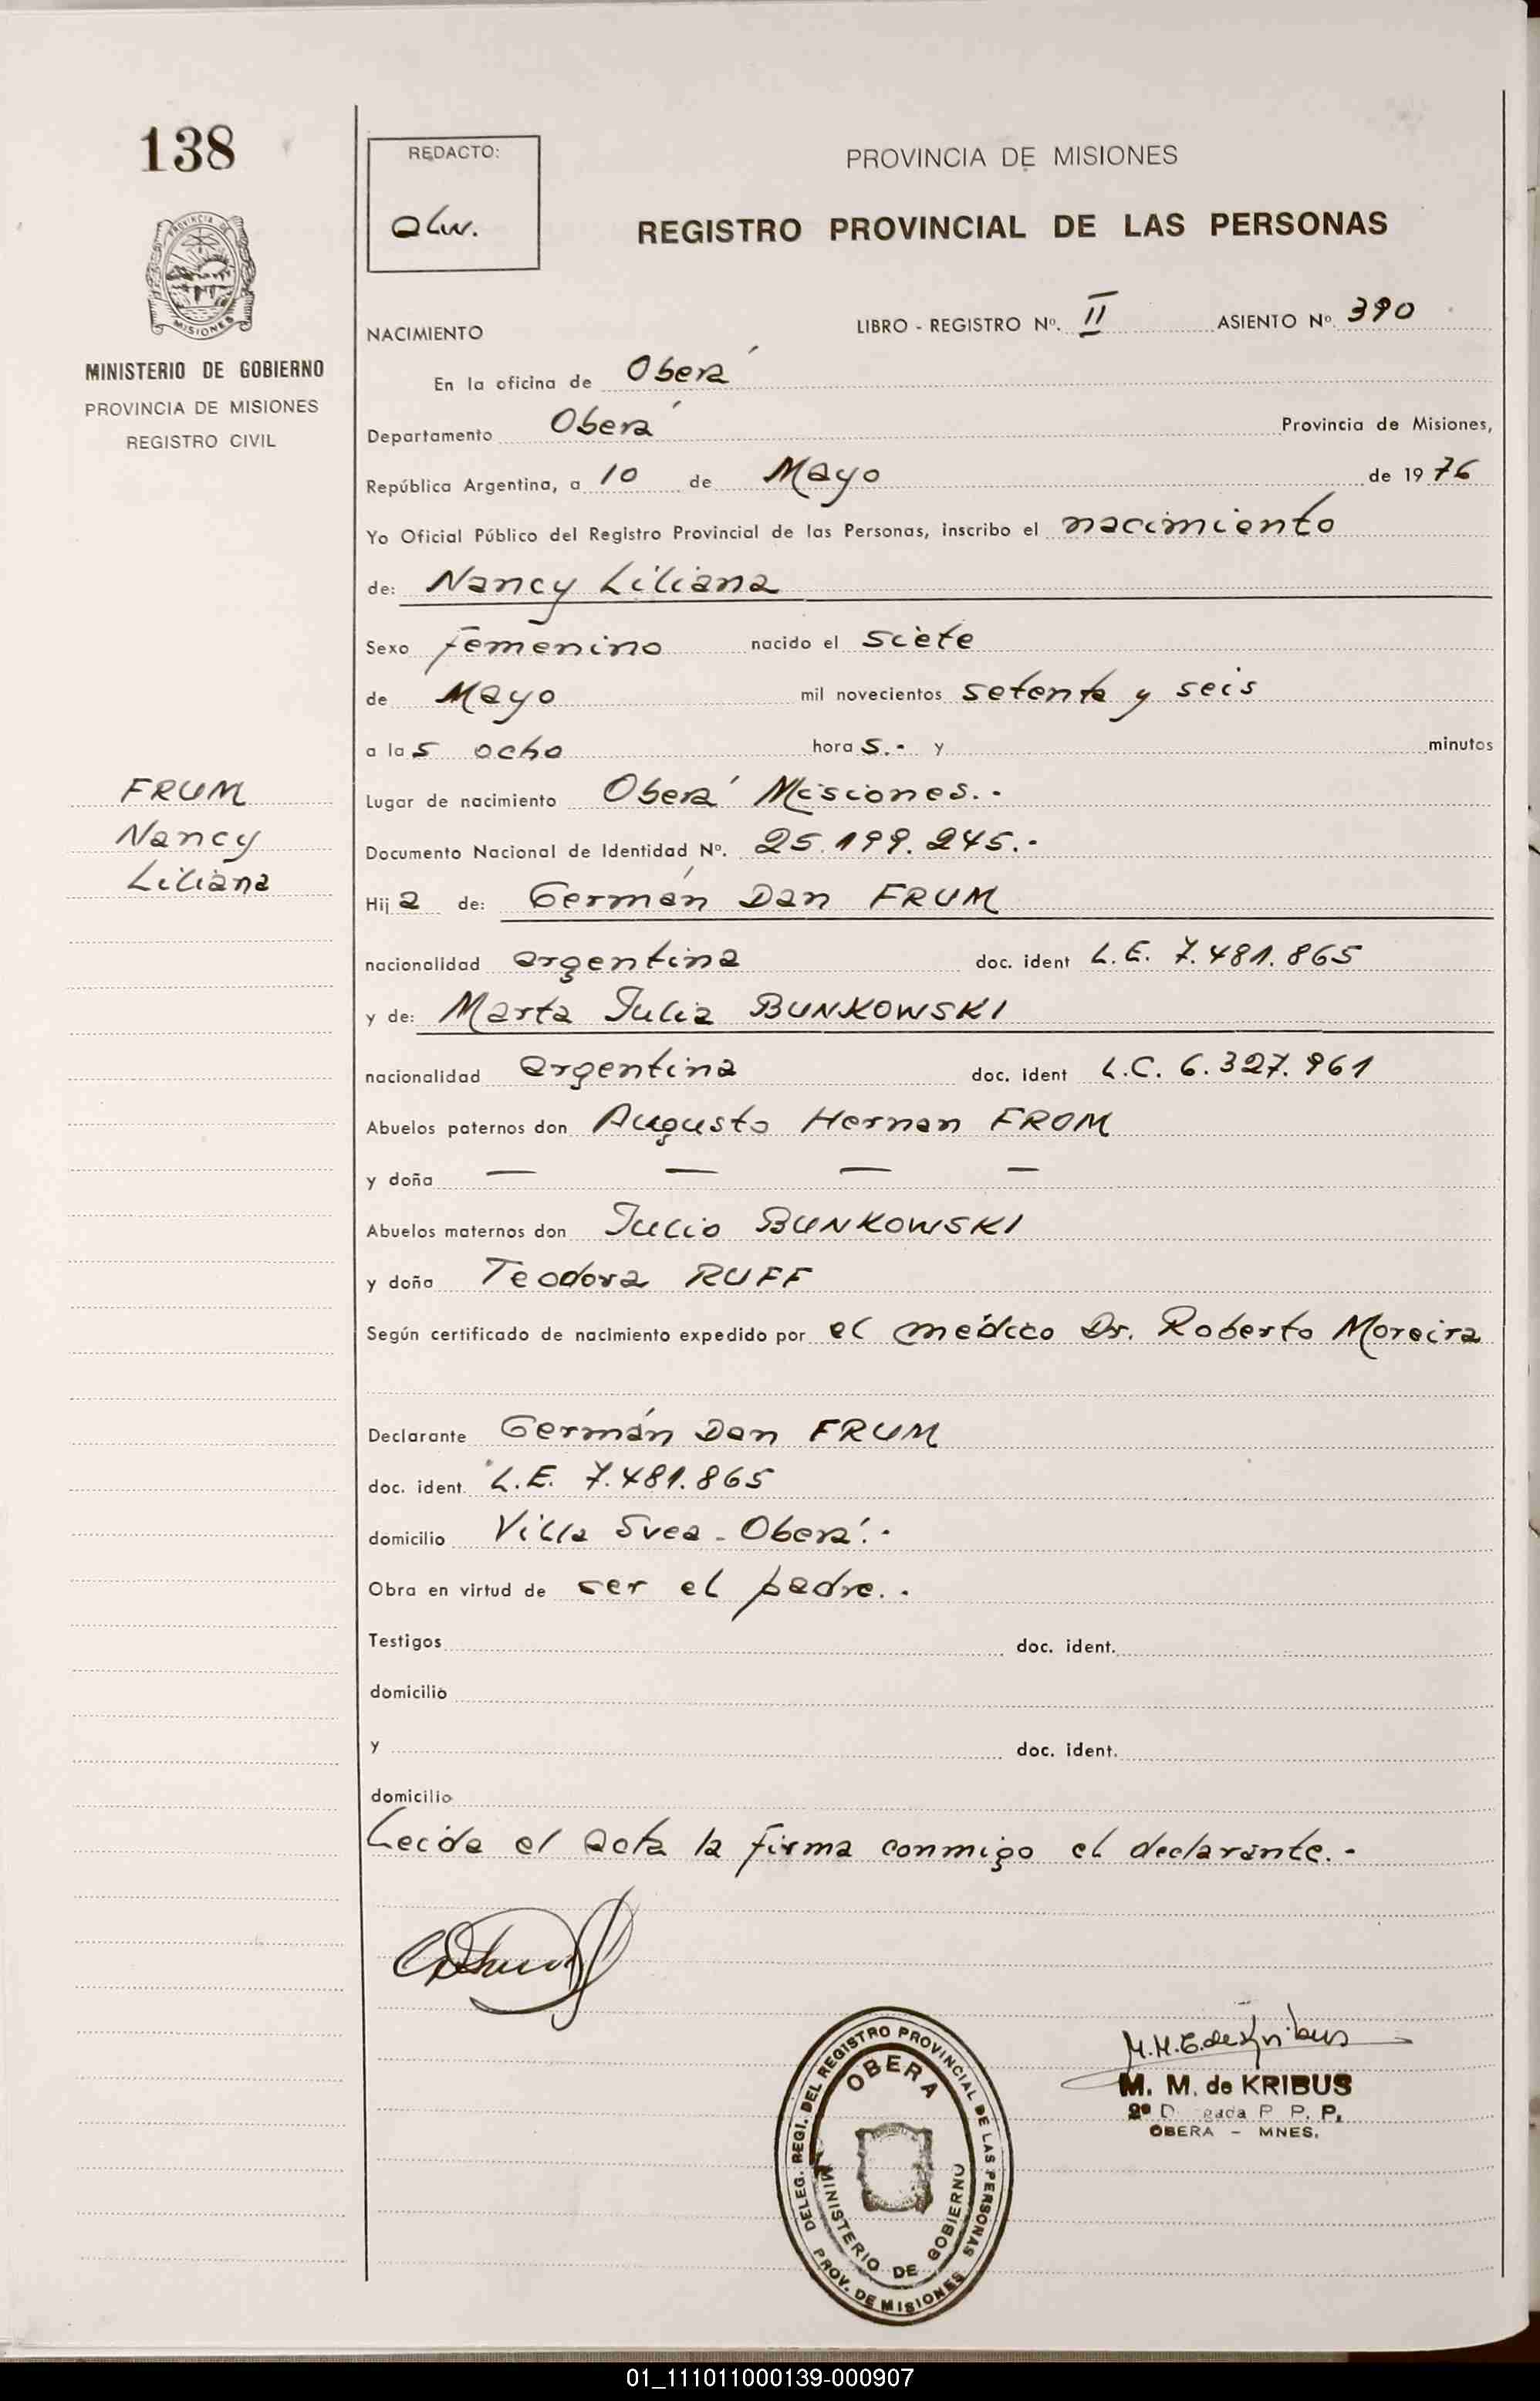 138
REDACTO:
PROVINCIA DE MISIONES
REGISTRO PROVINCIAL DE LAS PERSONAS
PROVINCIA DE
MISIONES
MINISTERIO DE GOBIERNO
PROVINCIA DE MISIONES
REGISTRO CIVIL
NACIMIENTO
LIBRO - REGISTRO Nº. II ASIENTO Nº 390
En la oficina de Oberá
Departamento Oberá Provincia de Misiones,
República Argentina, a 10 de Mayo de 1976
Yo Oficial Público del Registro Provincial de las Personas, inscribo el nacimiento
de: Nancy Liliana
Sexo femenino nacido el siete
de Mayo mil novecientos setenta y seis
a las ocho horas.- y minutos
Lugar de nacimiento Oberá Misiones.-
Documento Nacional de Identidad Nº. 25.199.245.-
Hija de: Germán Dan FRUM
nacionalidad argentina doc. ident L.E. 7.481.865
y de: Marta Julia BUNKOWSKI
nacionalidad argentina doc. ident L.C. 6.327.961
Abuelos paternos don Augusto Hernan FROM
y doña — — — —
Abuelos maternos don Julio BUNKOWSKI
y doña Teodora RUFF
Según certificado de nacimiento expedido por el médico Dr. Roberto Moreira
Declarante Germán Dan FRUM
doc. ident. L.E. 7.481.865
domicilio Villa Svea - Oberá.-
Obra en virtud de ser el padre.-
Testigos doc. ident.
domicilio
y doc. ident.
domicilio
Leida el acta la firma conmigo el declarante.-
FRUM
Nancy
Liliana
DELEG. REGI. DEL REGISTRO PROVINCIAL DE LAS PERSONAS
OBERA
MINISTERIO DE GOBIERNO
PROV. DE MISIONES
M. M. de KRIBUS
P. P. P.
OBERA - MNES.
01_111011000139-000907